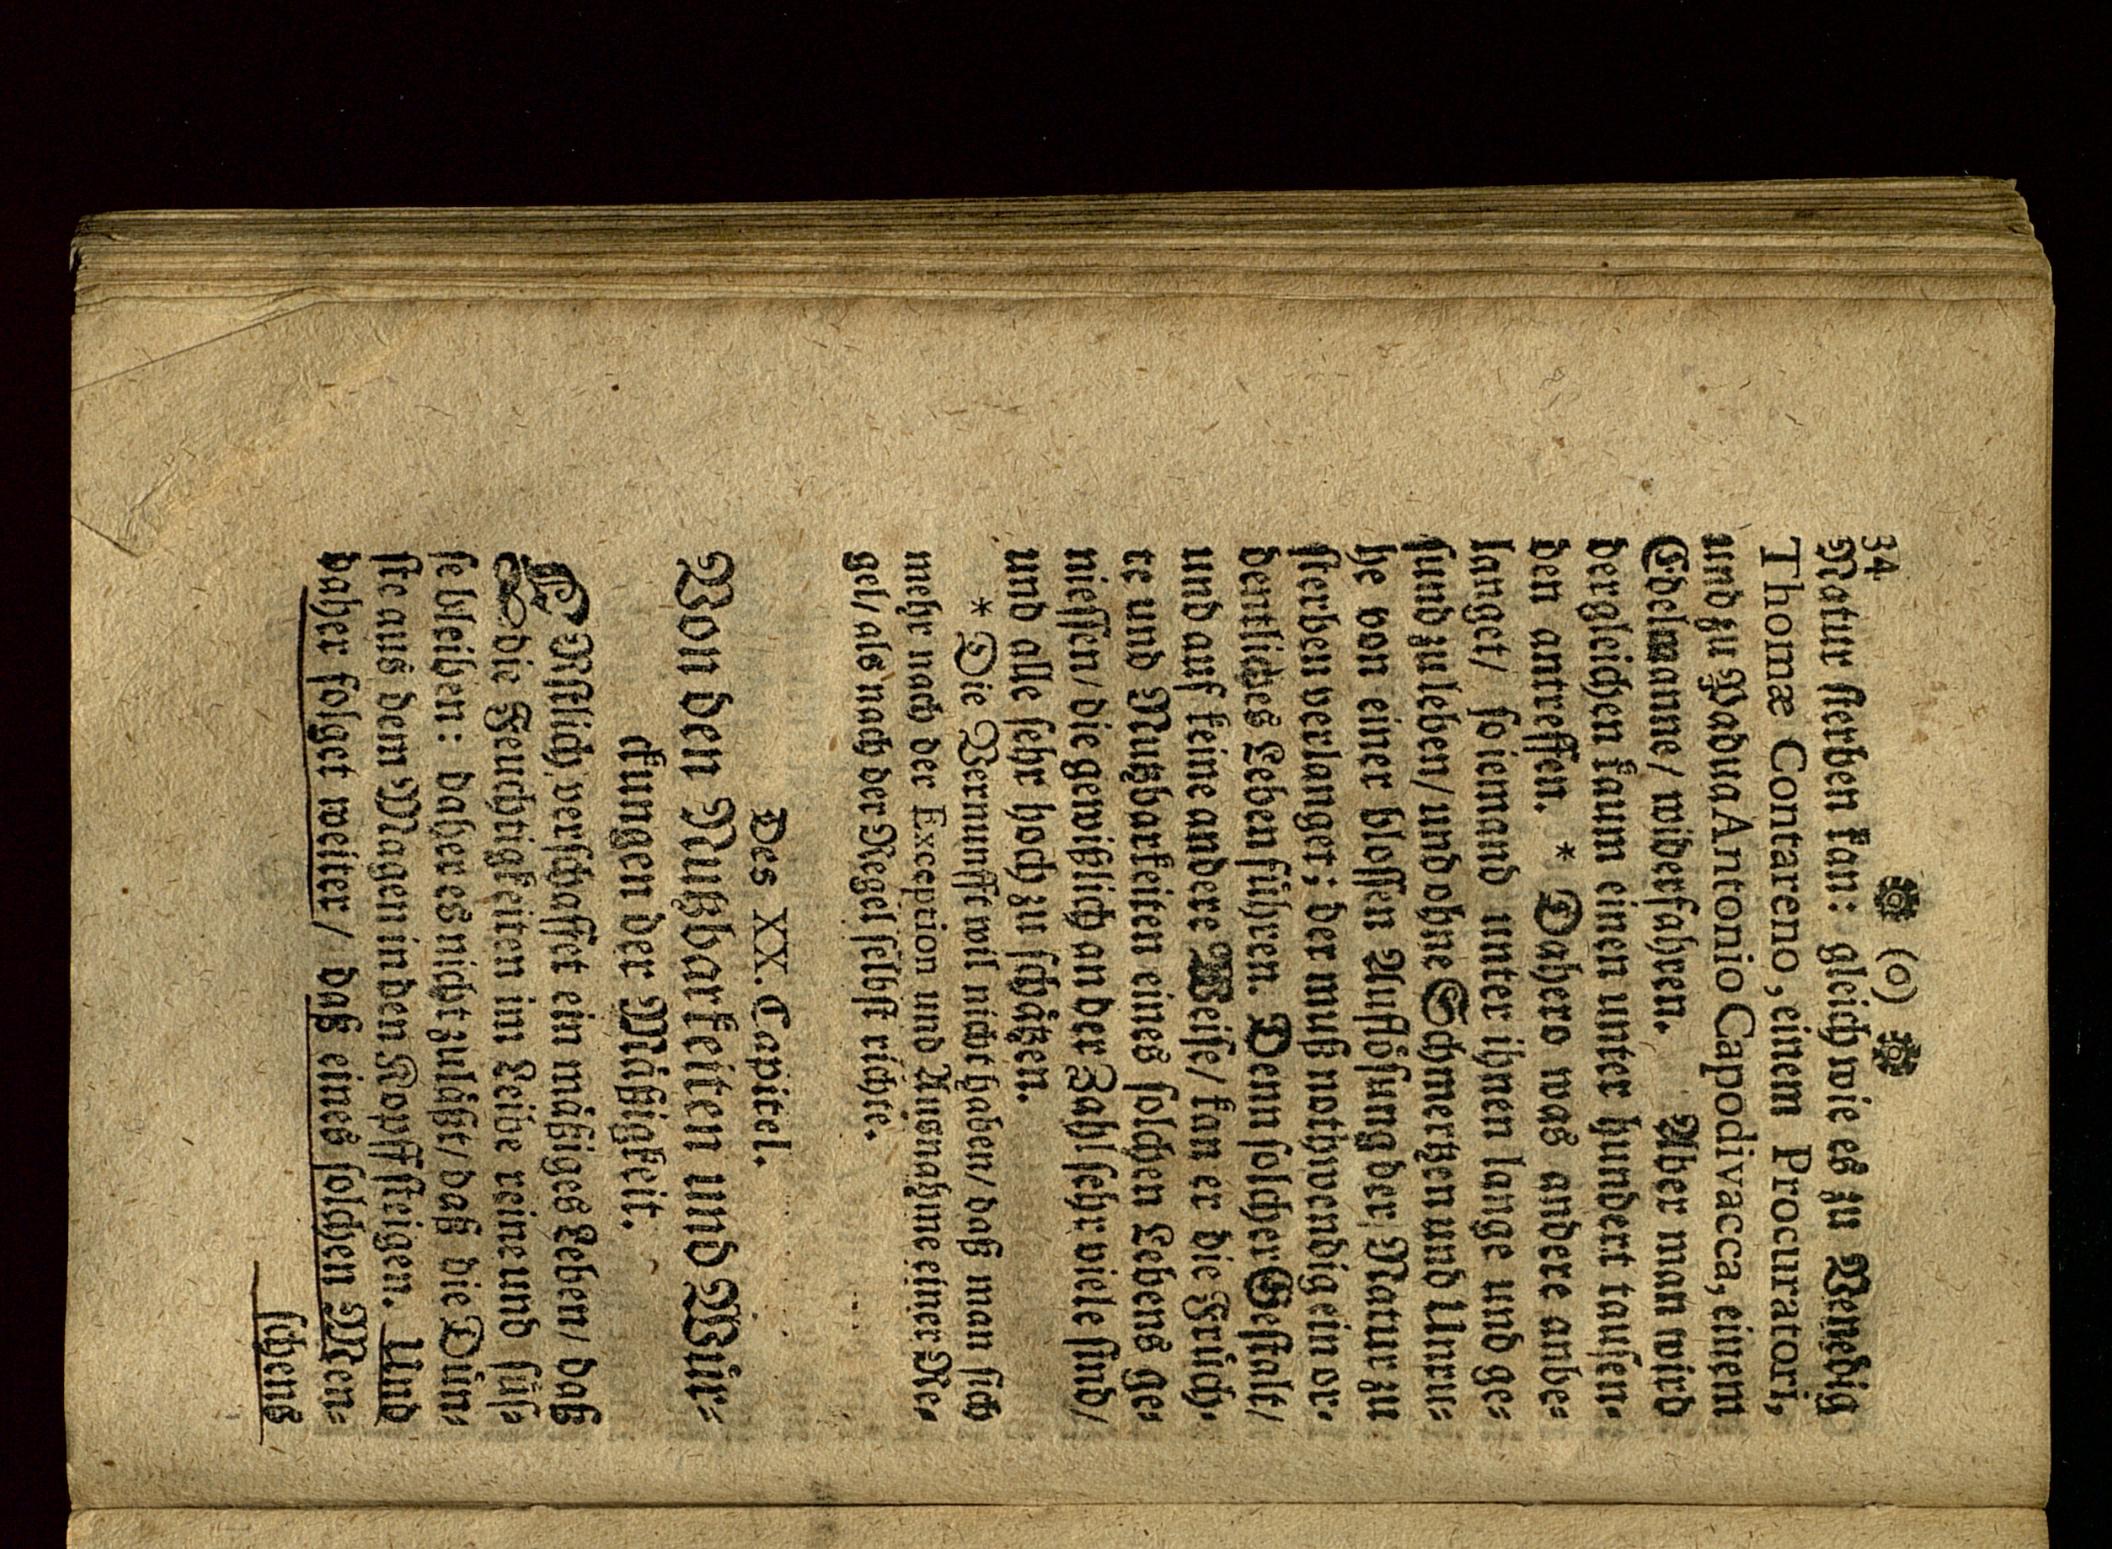 34 (o)
Natur sterben kan: gleich wie es zu Venedig
Thomæ Contareno, einem Procuratori,
und zu Padua Antonio Capodivacca, einem
Edelmanne/ widerfahren. Aber man wird
dergleichen kaum einen unter hundert tausen-
den antreffen. * Dahero was andere anbe-
langet/ so iemand unter ihnen lange und ge-
sund zu leben/ und ohne Schmertzen und Unru-
he von einer blossen Aufflösung der Natur zu
sterben verlanget; der muß nothwendig ein or-
dentliches Leben führen. Denn solcher Gestalt/
und auf keine andere Weise/ kan er die Früch-
te und Nutzbarkeiten eines solchen Lebens ge-
niessen/ die gewißlich an der Zahl sehr viele sind/
und alle sehr hoch zu schätzen.
* Die Vernunfft wil nicht haben/ daß man sich
mehr nach der Exception und Ausnahme einer Re-
gel/ als nach der Regel selbst richte.
Des XX. Capitel.
Von den Nutzbarkeiten und Wür-
ckungen der Mäßigkeit.
Erstlich verschaffet ein mäßiges Leben/ daß
die Feuchtigkeiten im Leibe reine und süs-
se bleiben: daher es nicht zuläßt/ daß die Dün-
ste aus dem Magen in den Kopff steigen. Und
daher folget weiter/ daß eines solchen Men-
schens